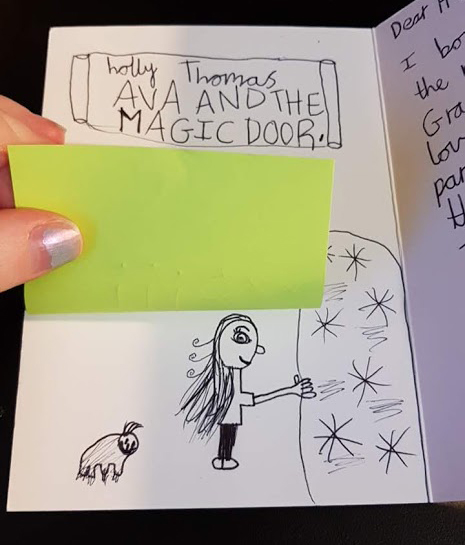 holly Thomas
AVA AND THE
MAGIC DOOR.
Dear
I bo
the
Gra
lov
par